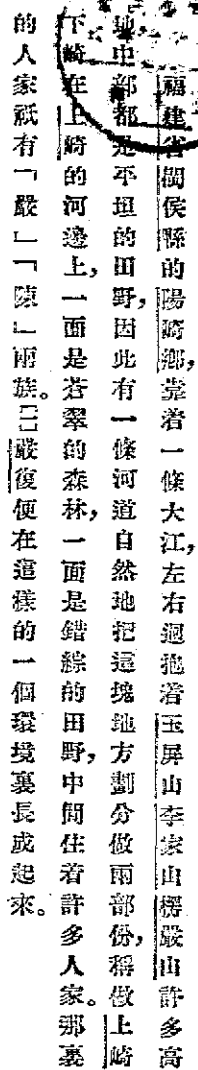 福建省閩侯縣的陽崎鄉，靠着一條大江，左右迴抱着玉屏山李家山楞嚴山許多高
地中部都是平坦的田野，因此有一條河道自然地把這塊地方劃分做兩部份，稱做上崎
下崎在上崎的河邊上，一面是蒼翠的森林，一面是錯綜的田野，中間住着許多人家。那裏
的人家祇有「嚴」「陳」兩族。〔一〕嚴復便在這樣的一個環境裏長成起來。